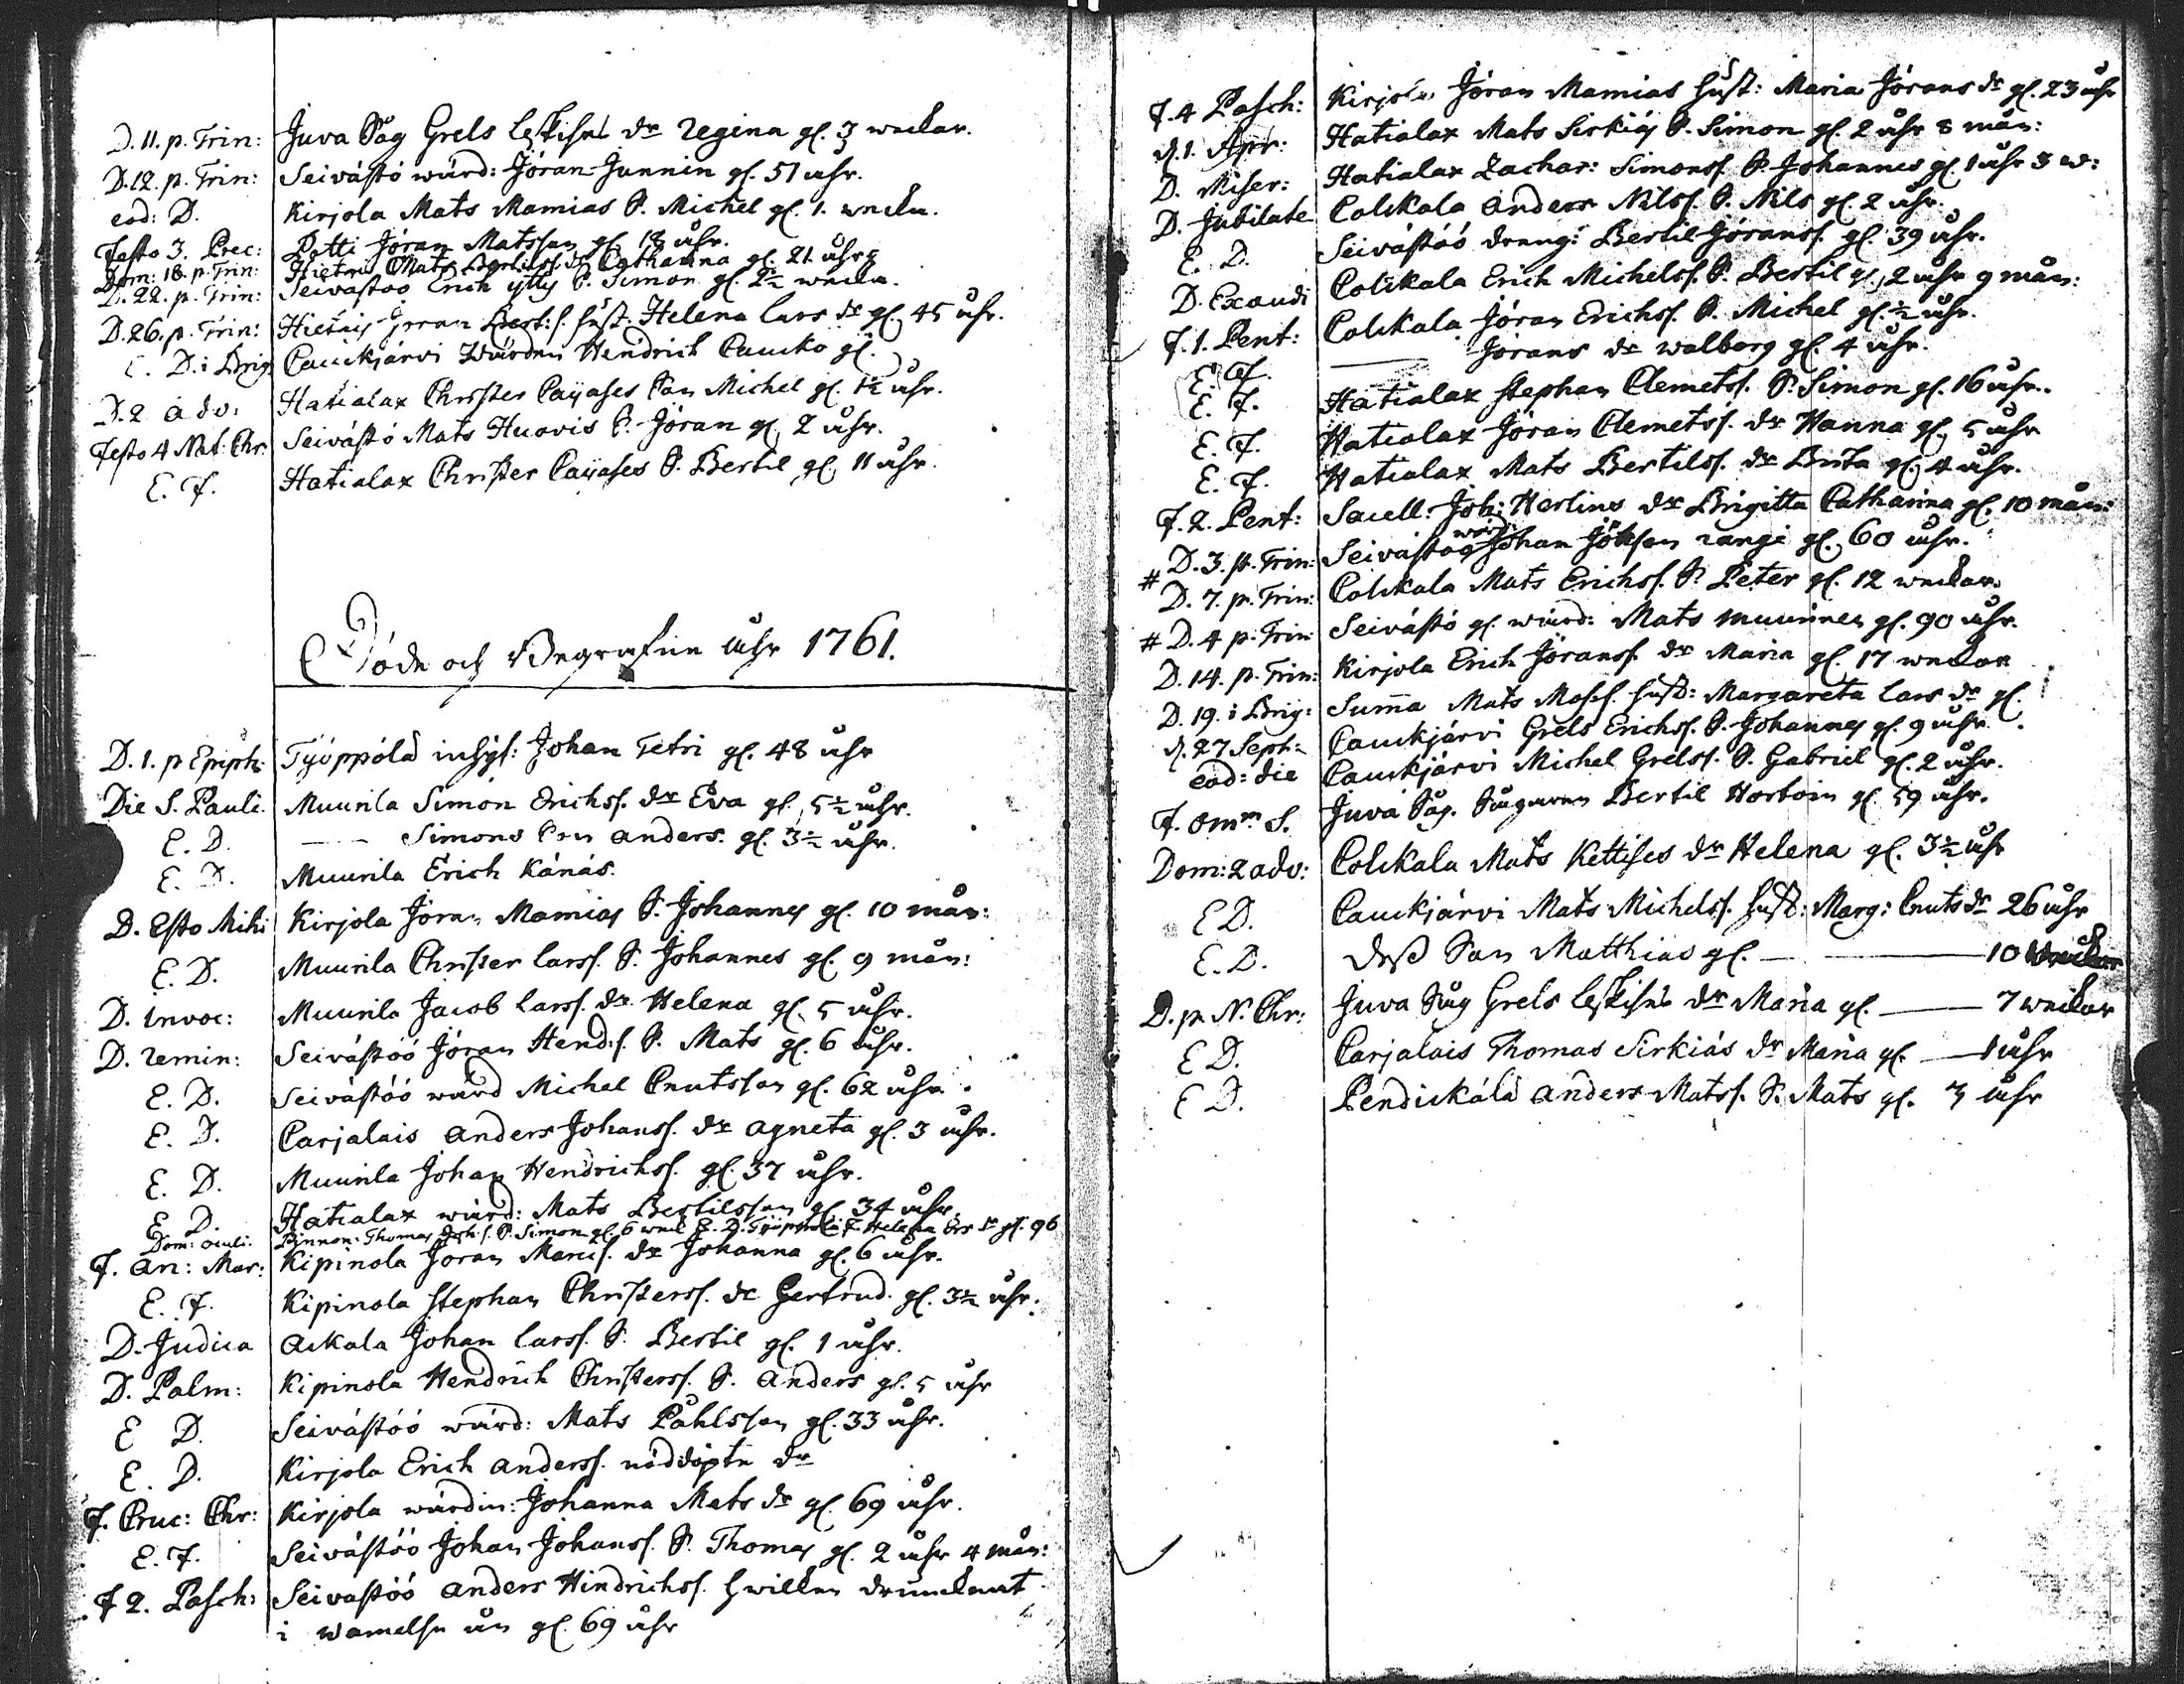 D. 11. p. Trin: Juva Såg Grels Leskises dr Regina gl. 3 weckor.
D. 12. p. Trin: Seivästö wärd: Jöran Junnin gl. 51 åhr.
eod: D. Kirjola Mats Mamias S. Michel gl. 1. wecka.
Festo 3. Prec: Potti Jöran Matsson gl. 18 åhr.
Dom: 18. p. Trin: Hietais Mats Bertilss. dr Catharina gl. 21 åhr
D. 22. p. Trin: Seivästöö Erich ytty S. Simon gl. 2½ wecka.
D. 26. p. Trin: Hietais Jöran Bert: s. hust. Helena Lars dr gl. 45 åhr.
E. D. i Brig Cauckjärvi Wärden Hendrich Caucko gl.
D. 2 adv: Hatialax Christer Cayases Son Michel gl. 1½ åhr.
Festo 4 Nat. Chr. Seivästö Mats Huovis S. Jöran gl. 2 åhr.
E. F. Hatialax Christer Cayases S. Bertil gl. 11 åhr.
Döde och Begrafne åhr 1761.
D. 1. p Epiph: Työppölä inhys: Johan Tetri gl. 48 åhr
Die S. Pauli. Muurila Simon Erichss. dr Eva gl. 5½ åhr.
E. D. — Simons Son Anders. gl. 3½ åhr.
E. D. Muurila Erich Känäs.
D. Esto Mihi Kirjola Jöran Mamias S. Johannes gl. 10 mån:
E. D. Muurila Christer Larss. S. Johannes gl. 9 mån:
D. Invoc: Muurila Jacob Larss. dr Helena gl. 5 åhr.
D. Remin: Seivästöö Jöran Hend: s. S. Mats gl. 6 åhr.
E. D. Seivästöö wärd Michel Cnutsson gl. 62 åhr.
E. D. Carjalais Anders Johanss. dr Agneta gl. 3 åhr.
E. D. Muurila Johan Hendrichs. gl. 37 åhr.
E. D. Hatialax wärd: Mats Bertilsson gl. 34 åhr.
Dom: oculi. Pinnon: Thomas S. Simon gl. 6 weck E. D. Helena dr gl. 96
F. An: Mar: Kipinola Jöran Marcs. dr Johanna gl. 6 åhr.
E. F. Kipinola Stephan Christerss. dr Gertrud. gl. 3½ åhr.
D. Judica Ackala Johan Larss. S. Bertil gl. 1 åhr.
D. Palm: Kipinola Hendrich Christerss. S. Anders gl. 5 åhr
E D. Seivästöö wärd: Mats Påhlsson gl. 33 åhr.
E. D. Kirjola Erich Anderss. nöddöpte dr
F. Cruc: Chr: Kirjola wärdin: Johanna Mats dr gl. 69 åhr.
E. F. Seivästöö Johan Johanss. S. Thomas gl. 2 åhr 4 mån:
F 2. Pasch: Seivastöö Anders Hindrichss. hwilken drunknat
i Wamelsu ån gl. 69 åhr
F. 4 Pasch: Kirjola Jöran Mamias hust: Maria Jörans dr gl. 23 åhr
d. 1. Apr: Hatialax Mats Sirkiäs S. Simon gl. 2 åhr 8 mån:
D. Miser: Hatialax Zachar: Simonss. S. Johannes gl. 1 åhr 3 w:
D. Jubilate Colckala Anders Nilss. S. Nils gl. 2 åhr.
E. D. Seivästöö dreng: Bertil Jöranss. gl. 39 åhr.
D. Exaudi Colckala Erich Michelss. S. Bertil gl. 2 åhr 9 mån:
F. 1. Pent: Colckala Jöran Erichss. S. Michel gl. ½ åhr.
E. F. — Jörans dr Walborg gl. 4 åhr.
E. F. Hatialax Stephan Clemetss. S. Simon gl. 16 åhr.
E. F. Hatialax Jöran Clemetss. dr Hanna gl. 5 åhr
E. F. Hatialax Mats Bertilss. dr Brita gl. 4 åhr.
F. 2. Pent: Sacell: Joh: Herlins dr Brigitta Catharina gl. 10 mån:
wärd
# D. 3. p. Trin: Seivästöö Johan Jöhsson Rangi gl. 60 åhr.
D. 7. p. Trin: Colckala Mats Erichss. S. Peter gl. 12 weckor.
# D. 4 p. Trin Seivästö gl. wärd: Mats Muurinen gl. 90 åhr.
D. 14. p. Trin: Kirjola Erich Jöranss. dr Maria gl. 17 weckor
D. 19. i Brig: Sum̄a Mats Matss. hust: Margareta Lars dr gl.
d. 27 Sept: Cauckjärvi Grels Erichss. S. Johannes gl. 9 åhr.
eod: die Cauckjärvi Michel Grelss. S. Gabriel gl. 2 åhr.
F. Omm S. Juva Såg. Sågaren Bertil Hortoin gl. 59 åhr.
Dom: 2 adv: Colckala Mats Kettises dr Helena gl. 3½ åhr
E D. Cauckjärvi Mats Michelss. hust: Marg: Cnuts dr 26 åhr
E. D. Dess Son Matthias gl. — 10 weckor
D. p. N. Chr: Juva Såg Grels Leskises dr Maria gl. — 7 weckor
E D. Carjalais Thomas Sirkiäs dr Maria gl. — 1 åhr
E D. Pendickälä Anders Matss. S. Mats gl. 3 åhr